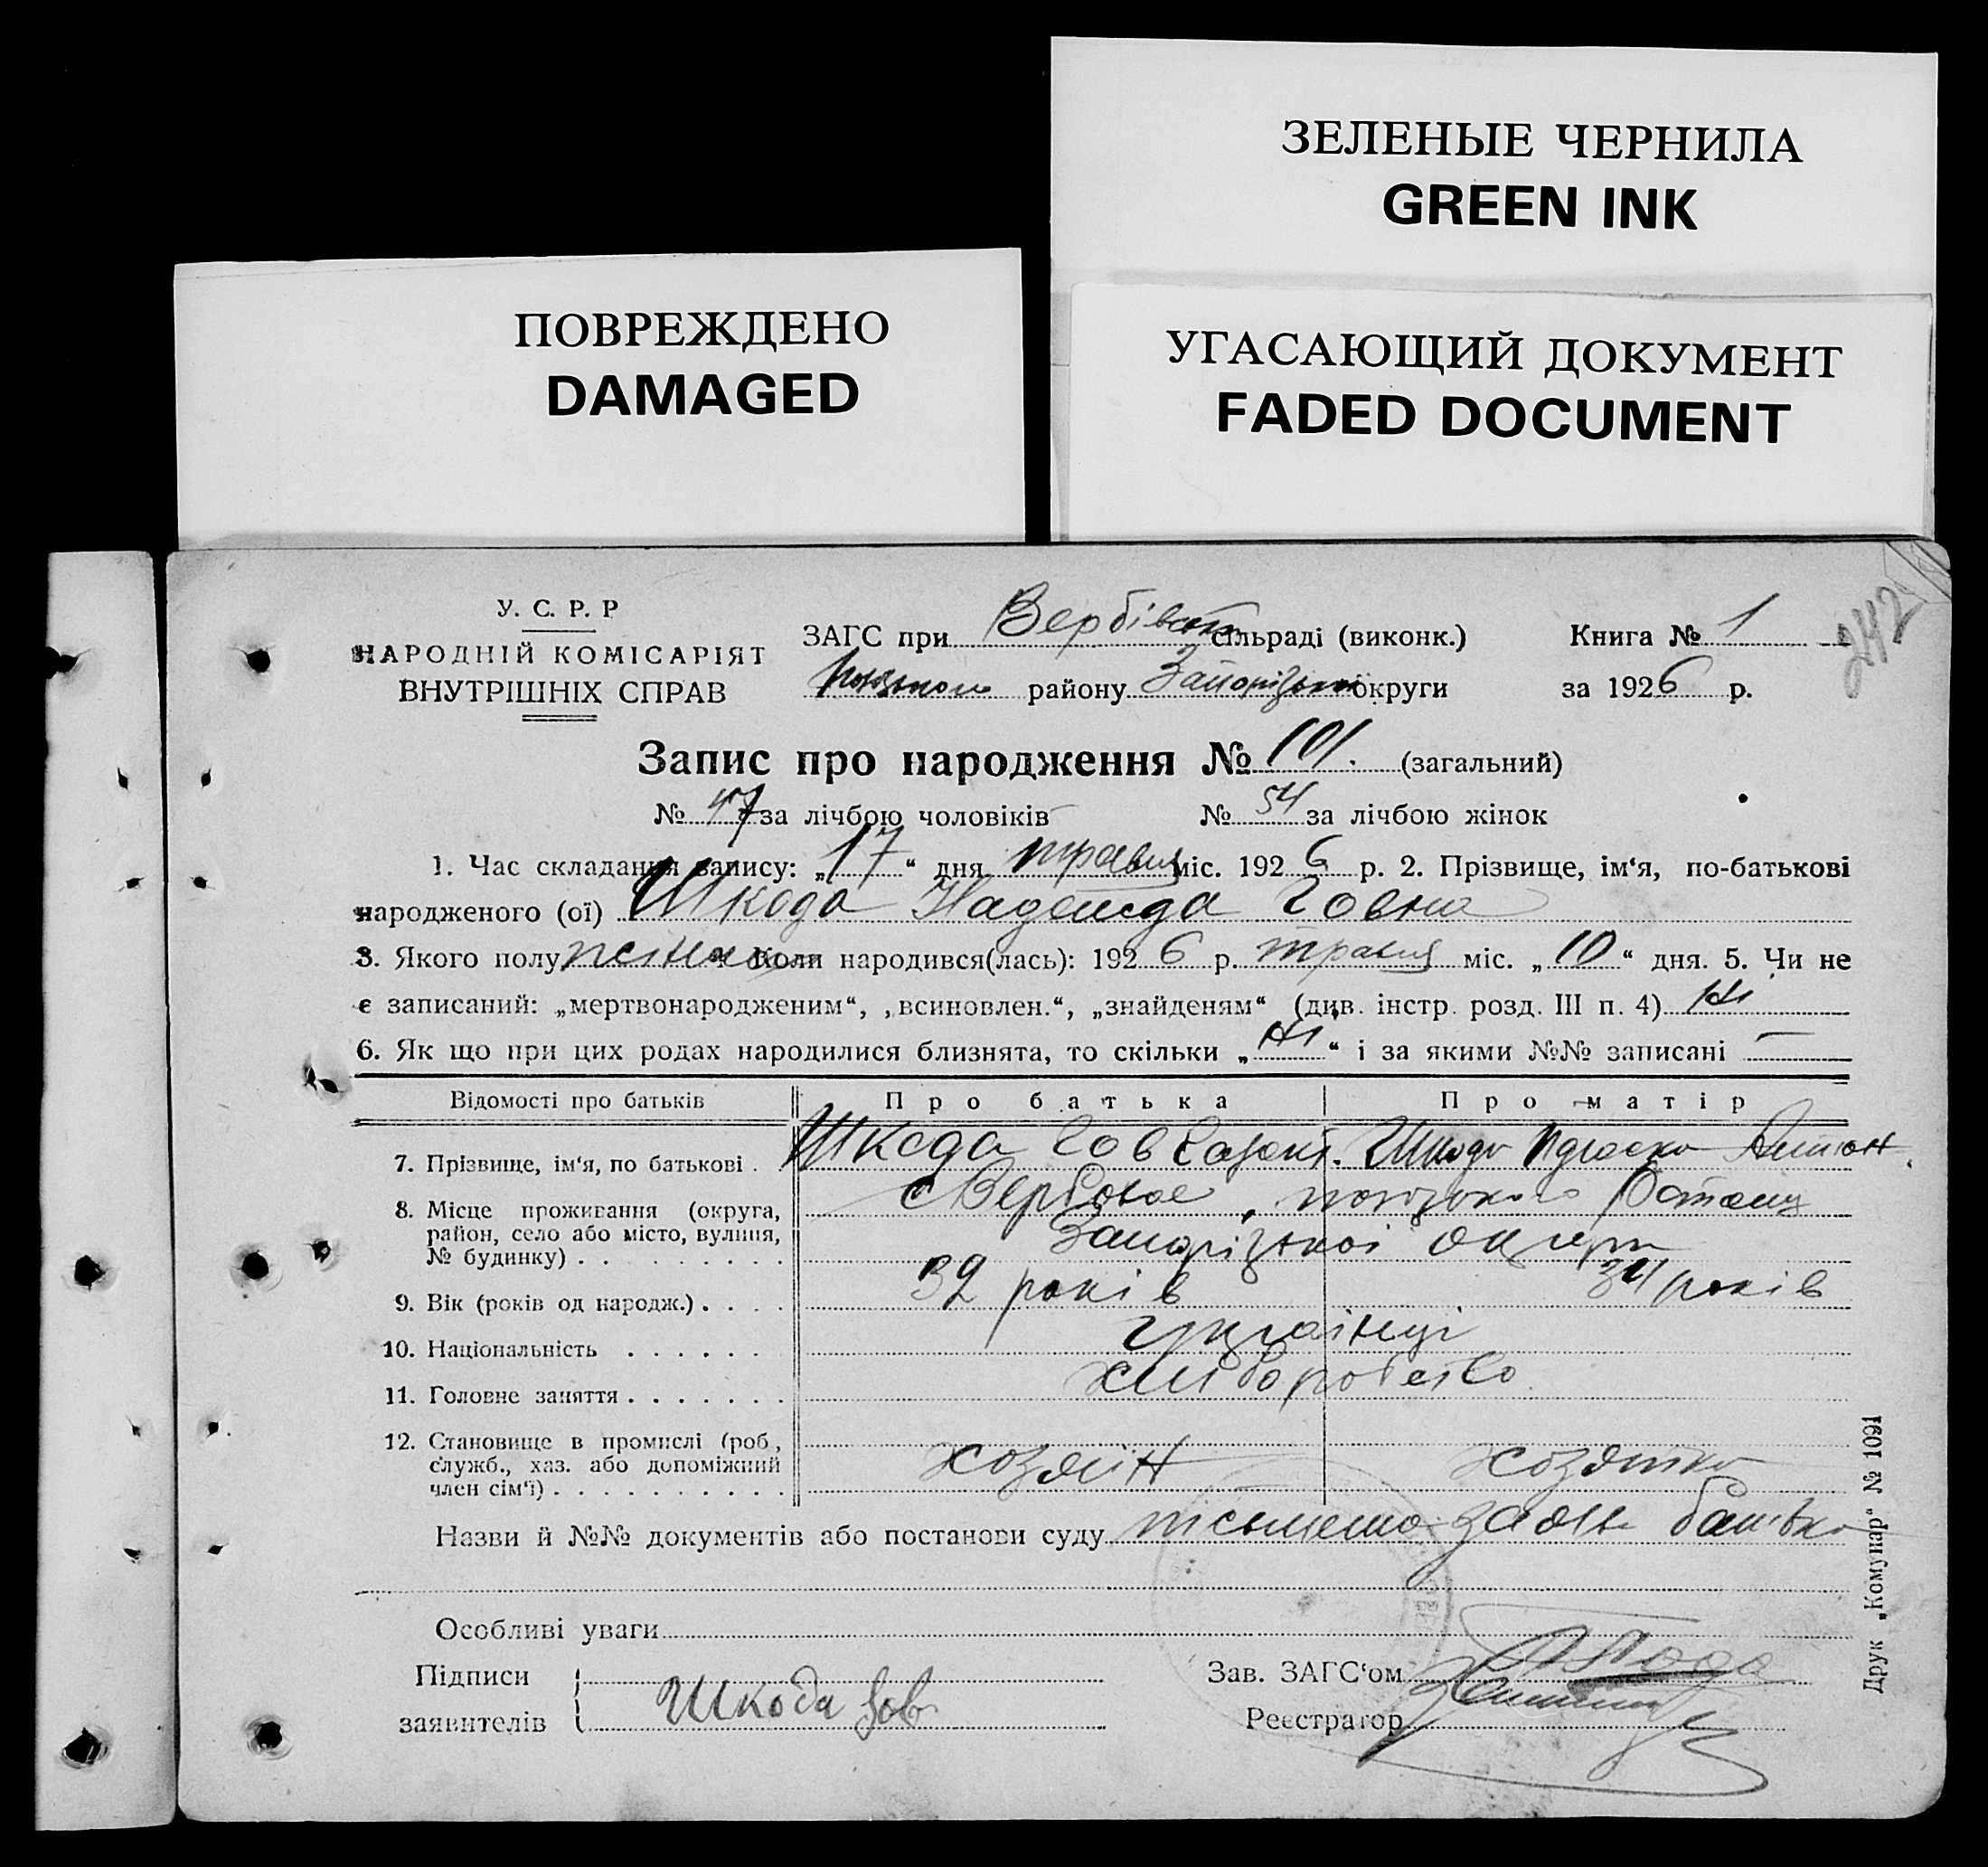 ЗЕЛЕНЫЕ ЧЕРНИЛА
GREEN INK
ПОВРЕЖДЕНО
DAMAGED
УГАСАЮЩИЙ ДОКУМЕНТ
FADED DOCUMENT
242
У. С. Р. Р
НАРОДНІЙ КОМІСАРІЯТ
ВНУТРІШНІХ СПРАВ
ЗАГС при сільраді (виконк.) Книга № 1
району Запорізької округи за 1926 р.
Запис про народження № 101. (загальний)
№ 47 за лічбою чоловіків № 54 за лічбою жінок
1. Час складання запису: „17“ дня травня міс. 1926 р. 2. Прізвище, ім‘я, по-батькові
народженого (ої) Шкода Надежда
3. Якого полу Коли народився(лась): 1926 р. травня міс. „10“ дня. 5. Чи не
є записаний: „мертвонародженим“, „всиновлен.“, „знайденям“ (див. інстр. розд. III п. 4) Ні
6. Як що при цих родах народилися близнята, то скільки „Ні“ і за якими №№ записані —
Відомості про батьків Про батька Про матір
7. Прізвище, ім‘я, по батькові . Шкода Шкода
8. Місце проживання (округа,
район, село або місто, вулиця,
№ будинку) . . . . . . . . . Запорізької округи
9. Вік (років од народж.) . . . . 39 років 34 років
10. Національність . . . . . . українці
11. Головне заняття . . . . . . .
12. Становище в промислі (роб.,
служб., хаз. або допоміжний
член сім‘ї) . . . . . . . . . . хозяїн хозяйка
Назви й №№ документів або постанови суду заява батька
Особливі уваги
Підписи
заявителів Шкода
Зав. ЗАГС‘ом
Реєстратор
Друк „Комунар“ № 1091